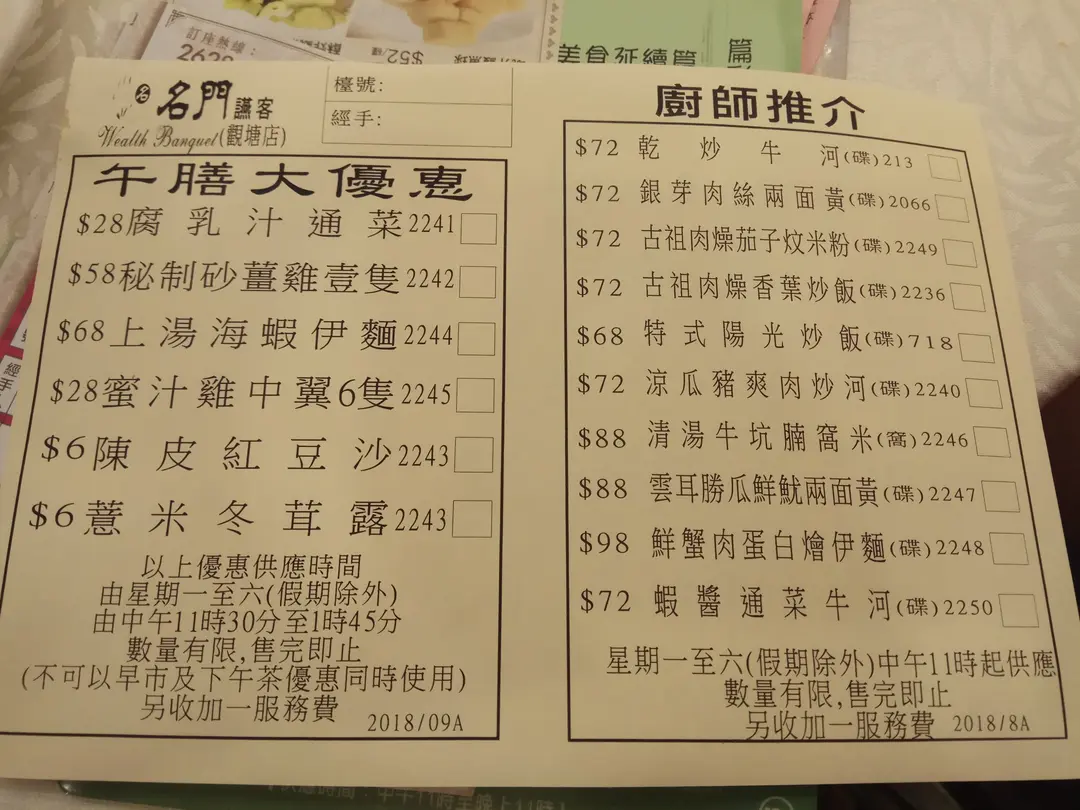 訂座熱線：
$52/碟
美食延續篇
名門讌客
Wealth Banquet(觀塘店)
檯號:
經手:
午膳大優惠
$28腐乳汁通菜2241
$58秘制砂薑雞壹隻2242
$68上湯海蝦伊麵2244
$28蜜汁雞中翼6隻2245
$6陳皮紅豆沙2243
$6薏米冬茸露2243
以上優惠供應時間
由星期一至六(假期除外)
由中午11時30分至1時45分
數量有限,售完即止
(不可以早市及下午茶優惠同時使用)
另收加一服務費 2018/09A
廚師推介
$72 乾炒牛河(碟)213
$72 銀芽肉絲兩面黃(碟)2066
$72 古祖肉燥茄子炆米粉(碟)2249
$72 古祖肉燥香葉炒飯(碟)2236
$68 特式陽光炒飯(碟)718
$72 涼瓜豬爽肉炒河(碟)2240
$88 清湯牛坑腩窩米(窩)2246
$88 雲耳勝瓜鮮魷兩面黃(碟)2247
$98 鮮蟹肉蛋白燴伊麵(碟)2248
$72 蝦醬通菜牛河(碟)2250
星期一至六(假期除外)中午11時起供應
數量有限,售完即止
另收加一服務費 2018/8A
經手
供應時間：中午11時至晚上11時